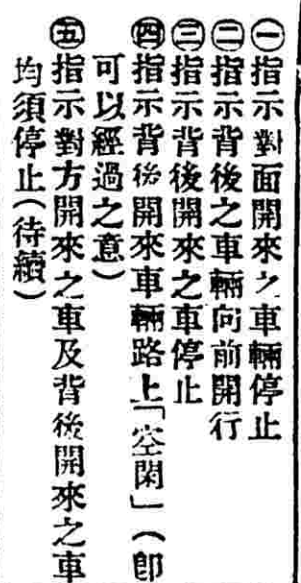 ㊀指示對面開來之車輛停止
㊁指示背後之車輛向前開行
㊂指示背後開來之車停止
㊃指示背後開來車輛路上「空閑」(卽
可以經過之意)
㊄指示對方開來之車及背後開來之車
均須停止(待續)